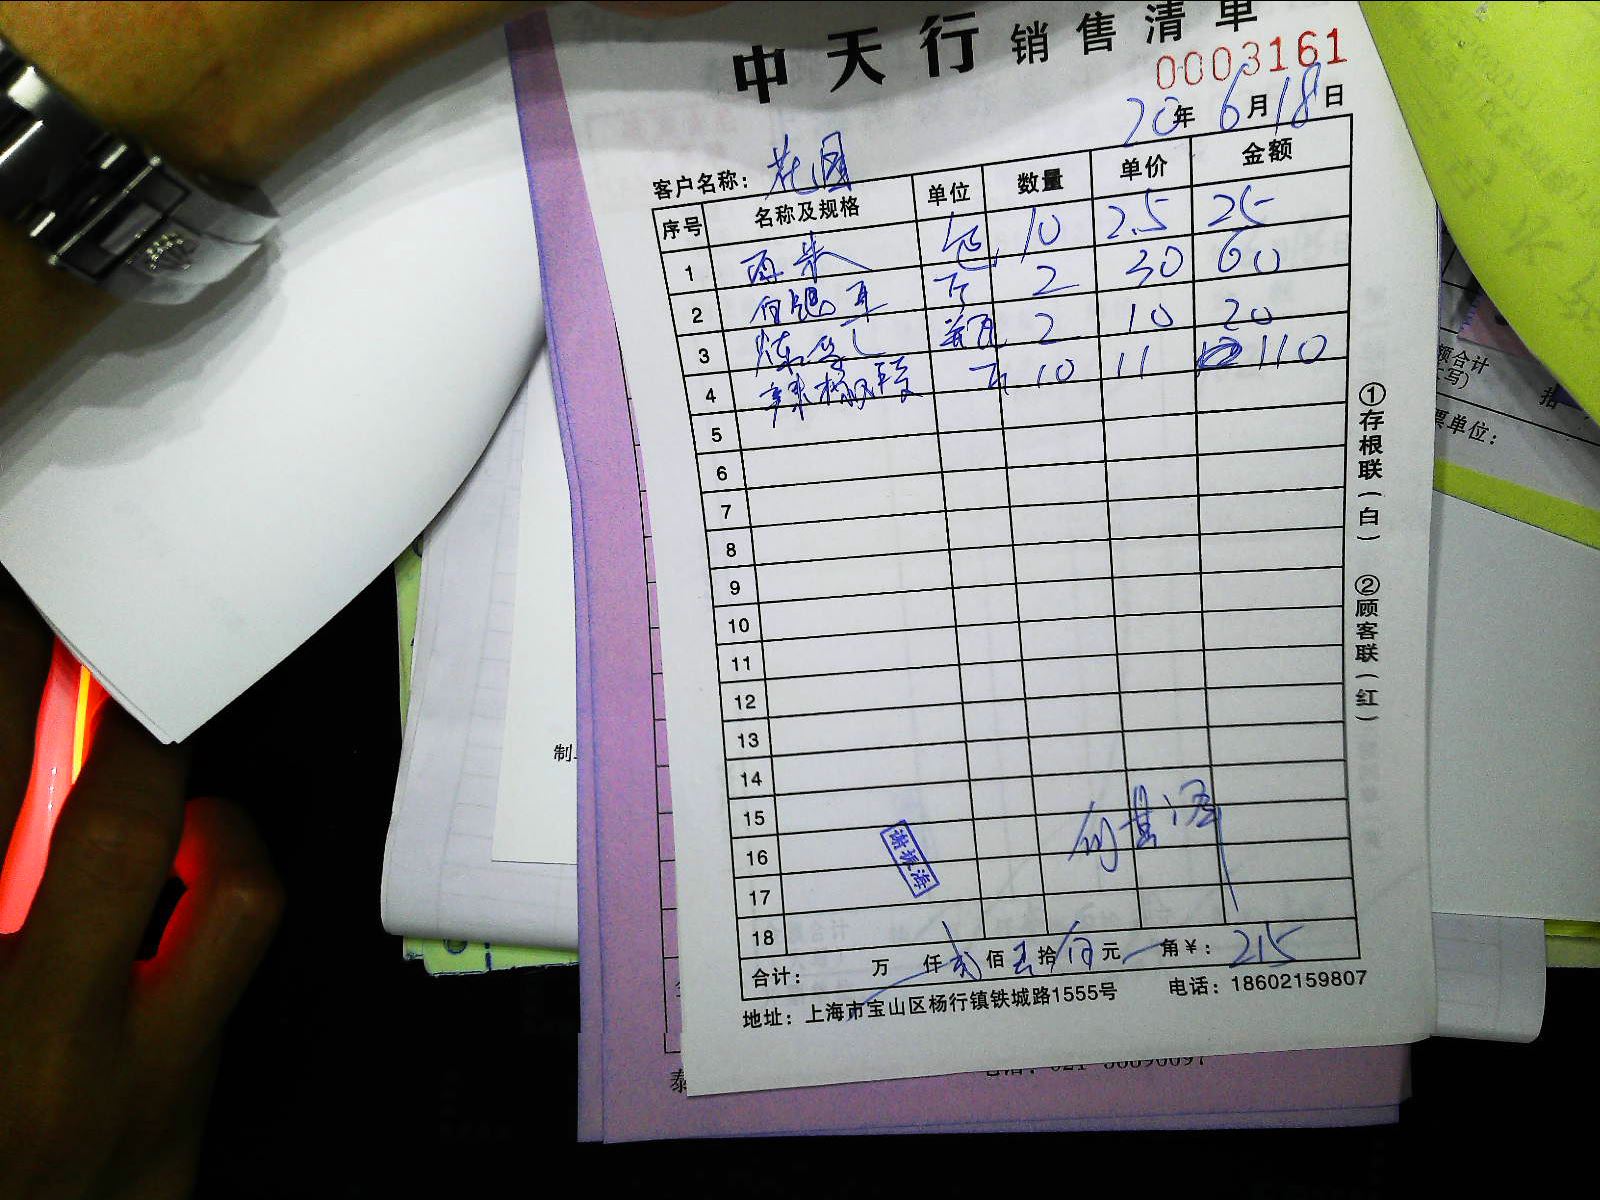 中天行 销售清单
0003161
20年6月18日
客户名称: 花园
序号 名称及规格 单位 数量 单价 金额
1 西米 包 10 2.5 25
2 斤 2 30 60
3 炼 瓶 2 10 20
4 辣椒段 斤 10 11 110
5
6
7
8
9
10
11
12
13
14
15
16
17
18
谢振海
合计: 万 仟 贰 佰 壹 拾 伍 元 角 ¥: 215
地址: 上海市宝山区杨行镇铁城路1555号 电话: 18602159807
①存根联(白) ②顾客联(红)
额合计
票单位:
制
泰